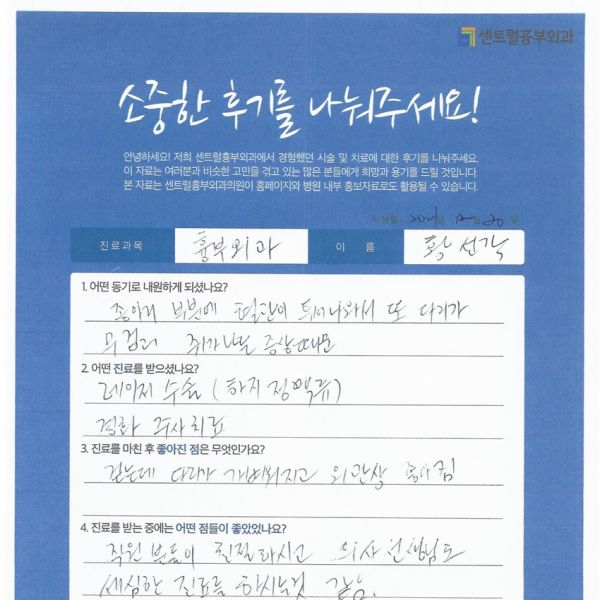 센트럴흉부외과
소중한 후기를 나눠주세요!
안녕하세요! 저희 센트럴흉부외과에서 경험했던 시술 및 치료에 대한 후기를 나눠주세요.
이 자료는 여러분과 비슷한 고민을 겪고 있는 많은 분들에게 희망과 용기를 드릴 것입니다.
본 자료는 센트럴흉부외과의원이 홈페이지와 병원 내부 홍보자료로도 활용될 수 있습니다.
작성일 2021년 12월 20일
진료과목 흉부외과 이 름 황선각
1. 어떤 동기로 내원하게 되셨나요?
종아리 부분에 혈관이 튀어나와서 또 다리가
무겁고 쥐가나는 증상때문
2. 어떤 진료를 받으셨나요?
레이저 수술 (하지정맥류)
경화 주사치료
3. 진료를 마친 후 좋아진 점은 무엇인가요?
걷는데 다리가 가벼워지고 외관상 좋아짐
4. 진료를 받는 중에는 어떤 점들이 좋았었나요?
직원분들이 친절하시고 의사선생님도
세심한 진료를 하시는것 같음.